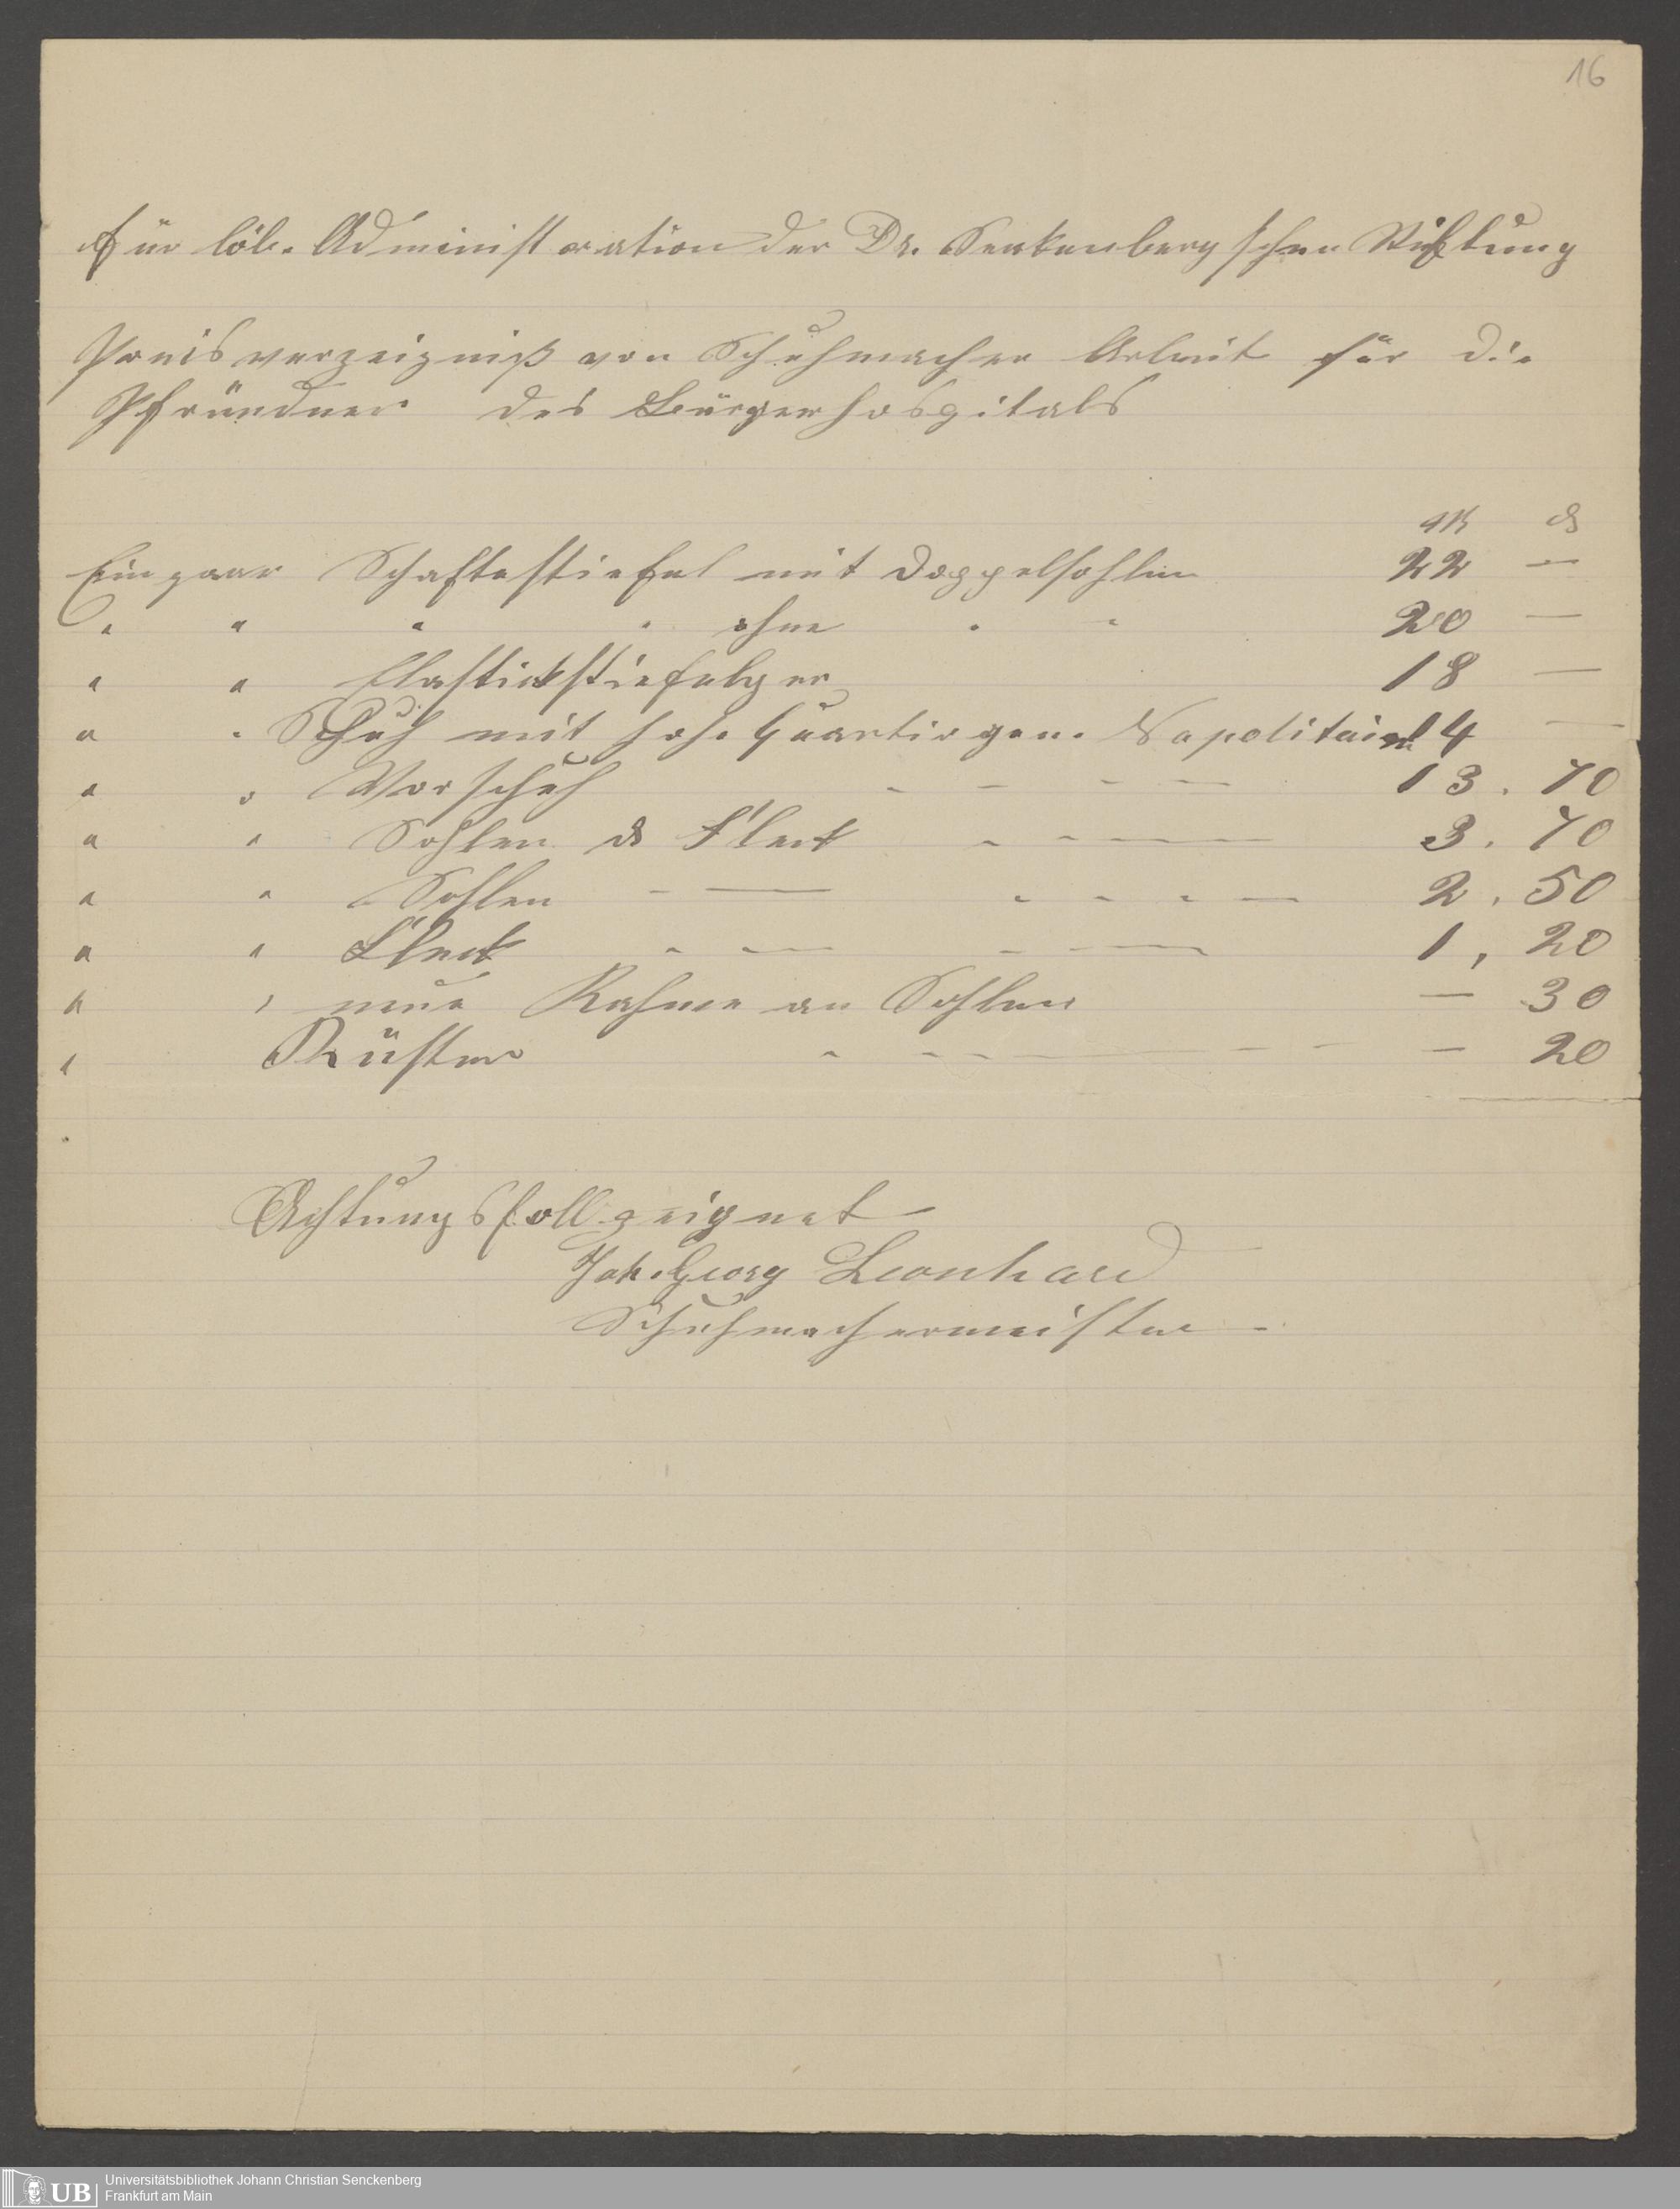 16
für löb. Administration der Dr. Senkenbergschen Stiftung
Preisverzeigniß von Schuhmacher Arbeit für die
Pfründner des Bürgerhospitals
M ₰
Ein paar Schaftestiefel mit Doppelsohlen 22 —
" " " " ohne " " 20 —
" " Elastickstiefelger 18 —
" " Schuh mit hoh. Quartir gen. Napolitain 14 —
" " Vorschuh - - - - 13. 70
" " Sohlen & Fleck - - — — 3. 70
" " Sohlen - — - - - — 2. 50
" " Fleck - - — - - — 1, 20
" " neue Rahme an Sohlen — 30
" Rüster - - - — — - — 20
Achtungsfoll zeignet
Joh. Georg Leonhard
Schuhmachermeister.
UB Universitätsbibliothek Johann Christian Senckenberg
Frankfurt am Main